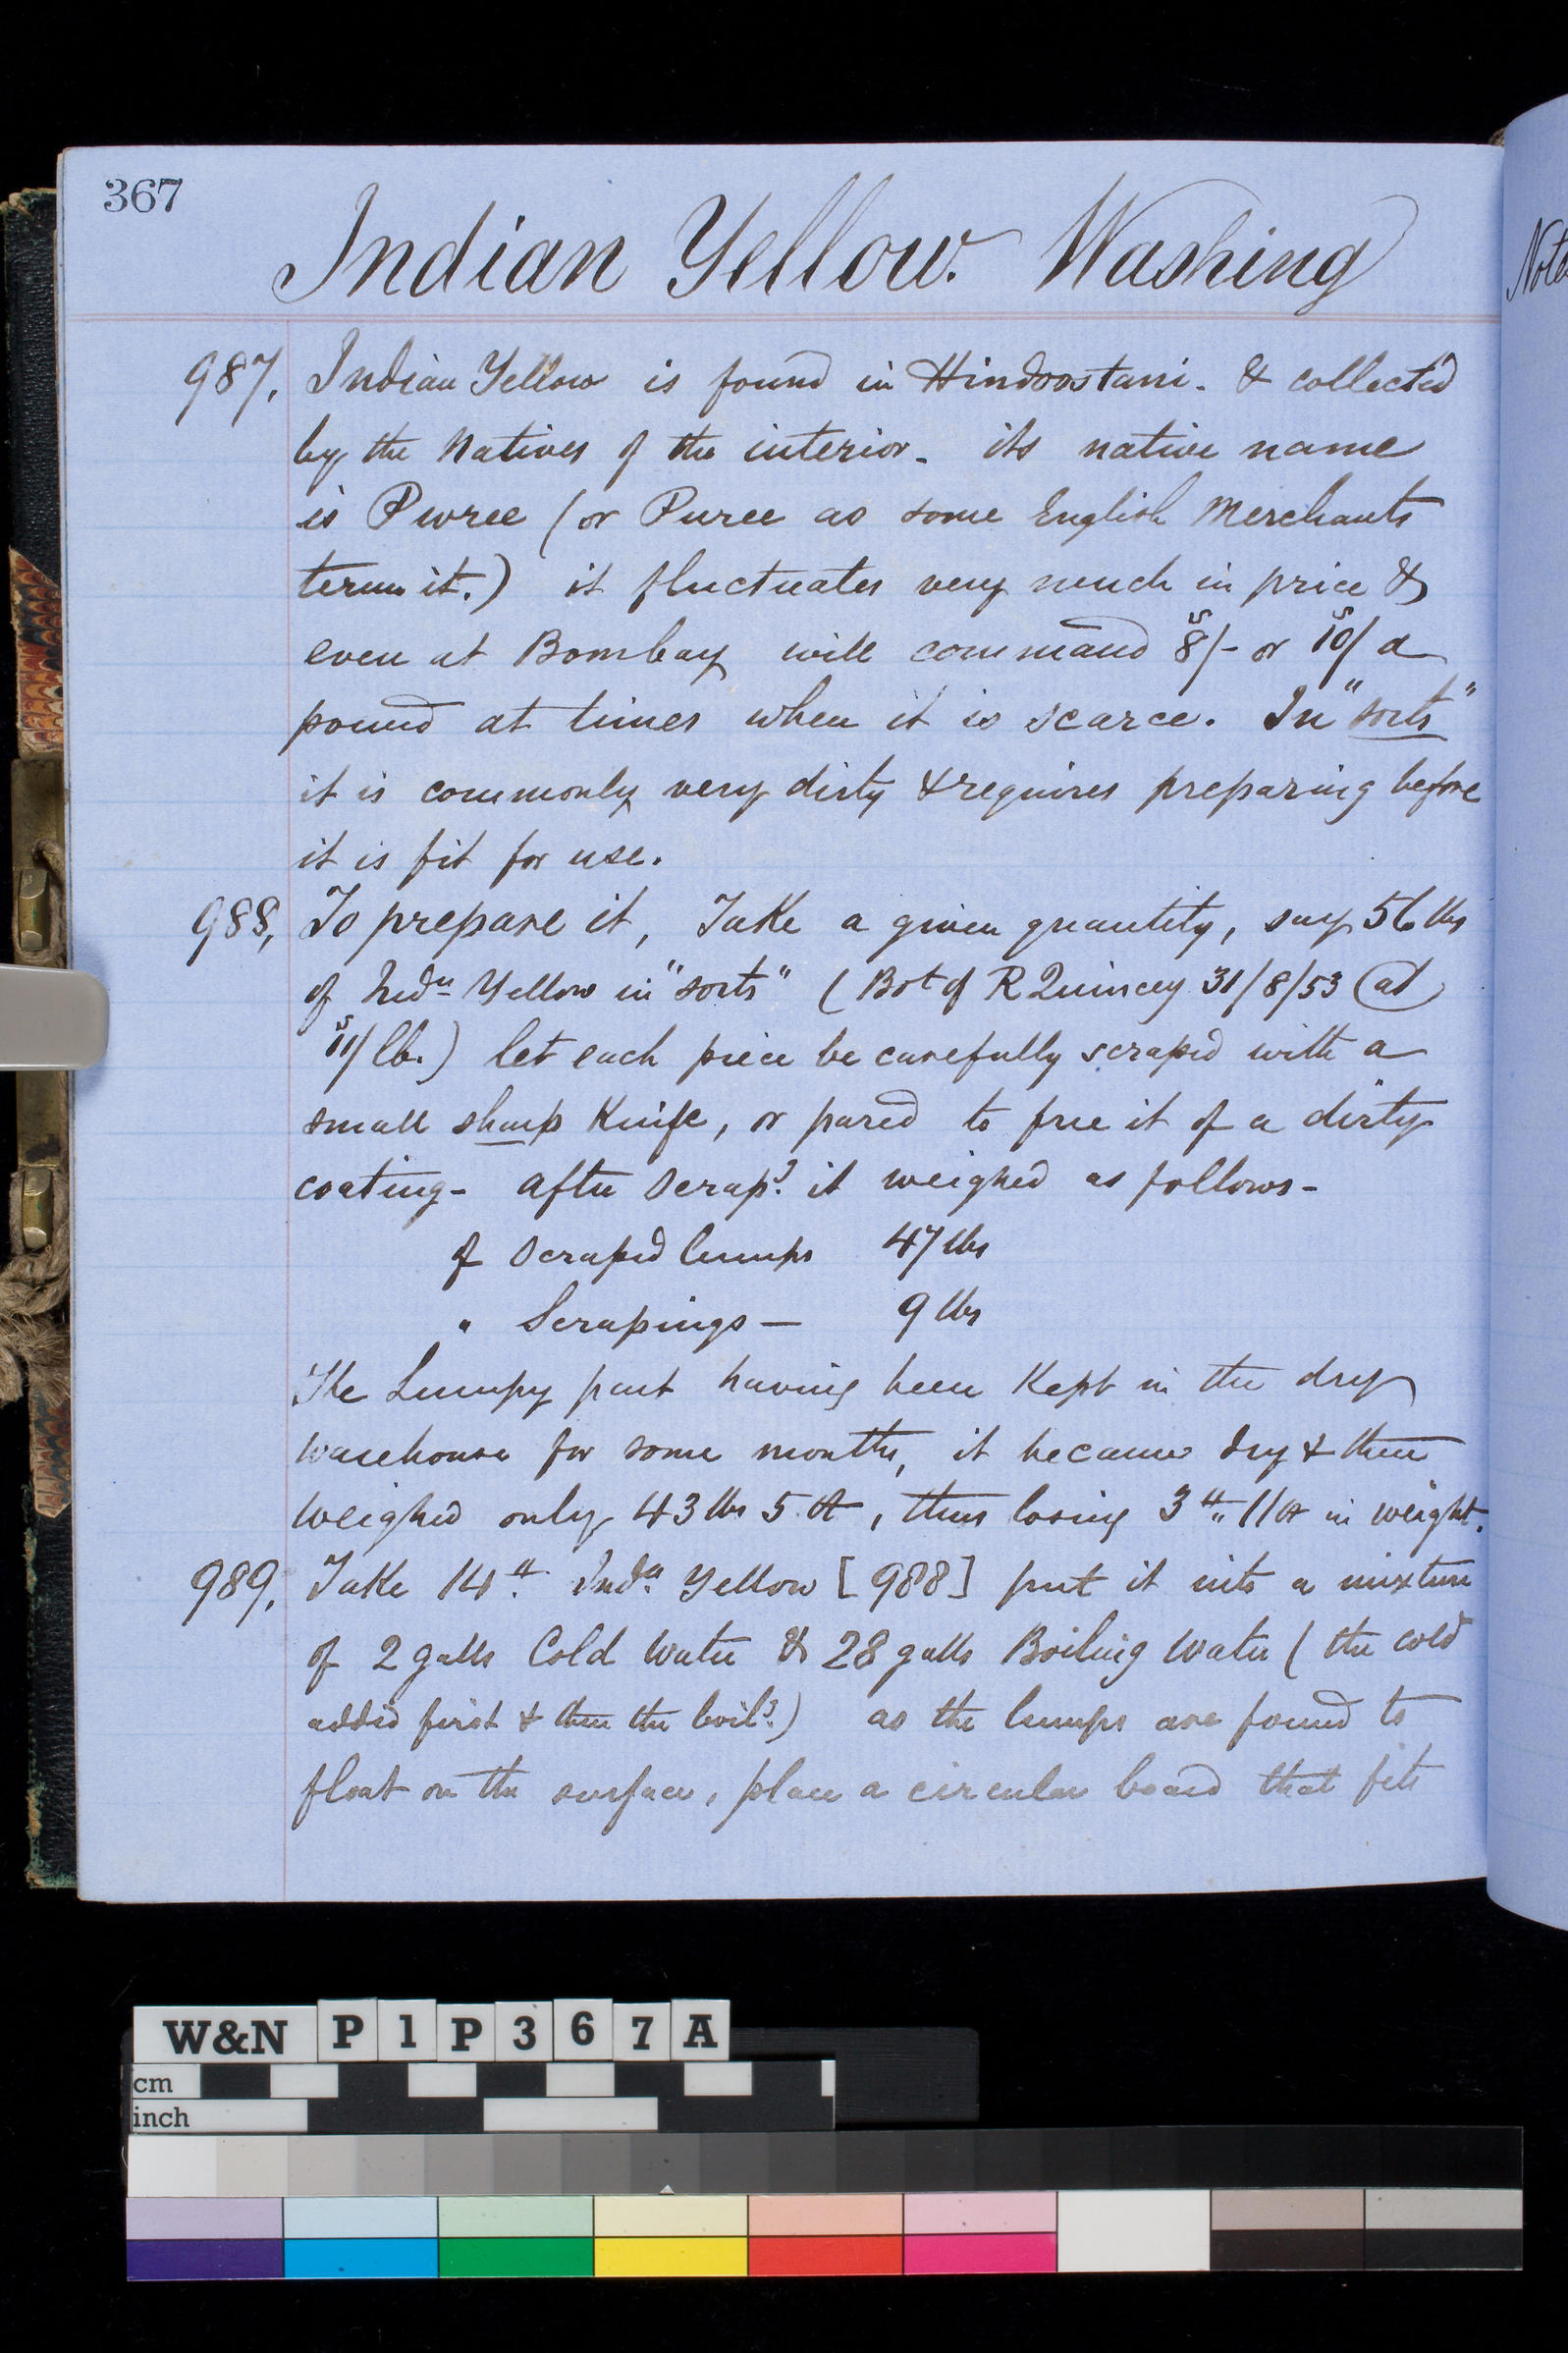 367
Indian Yellow. Washing
987. Indian Yellow is found in Hindoostani. & collected
by the Natives of the interior. its native name
is Pwree (or Puree as some English Merchants
term it.) it fluctuates very much in price &
even at Bombay will command 8s/- or 10s/ a
pound at times when it is scarce. In "sorts"
it is commonly very dirty & requires preparing before
it is fit for use.
988, To prepare it, Take a given quantity, say 56 lbs
of Indn Yellow in "sorts" (Bot of R Quincey 31/8/53 @
11s/ lb.) let each piece be carefully scraped with a
small sharp Knife, or pared to free it of a dirty
coating - after scrapg. it weighed as follows -
of scraped lumps 47 lbs
" Scrapings — 9 lbs
The Lumpy part having been Kept in the dry
warehouse for some months, it became dry & then
weighed only 43 lbs 5 , thus losing 3 11 in weight.
989. Take 14 Indn. Yellow [988] put it into a mixture
of 2 galls Cold Water & 28 galls Boiling Water (the cold
added first & then the boilg.) as the lumps are found to
float on the surface, place a circular board that fits
Note
W&N P1P367A
cm
inch